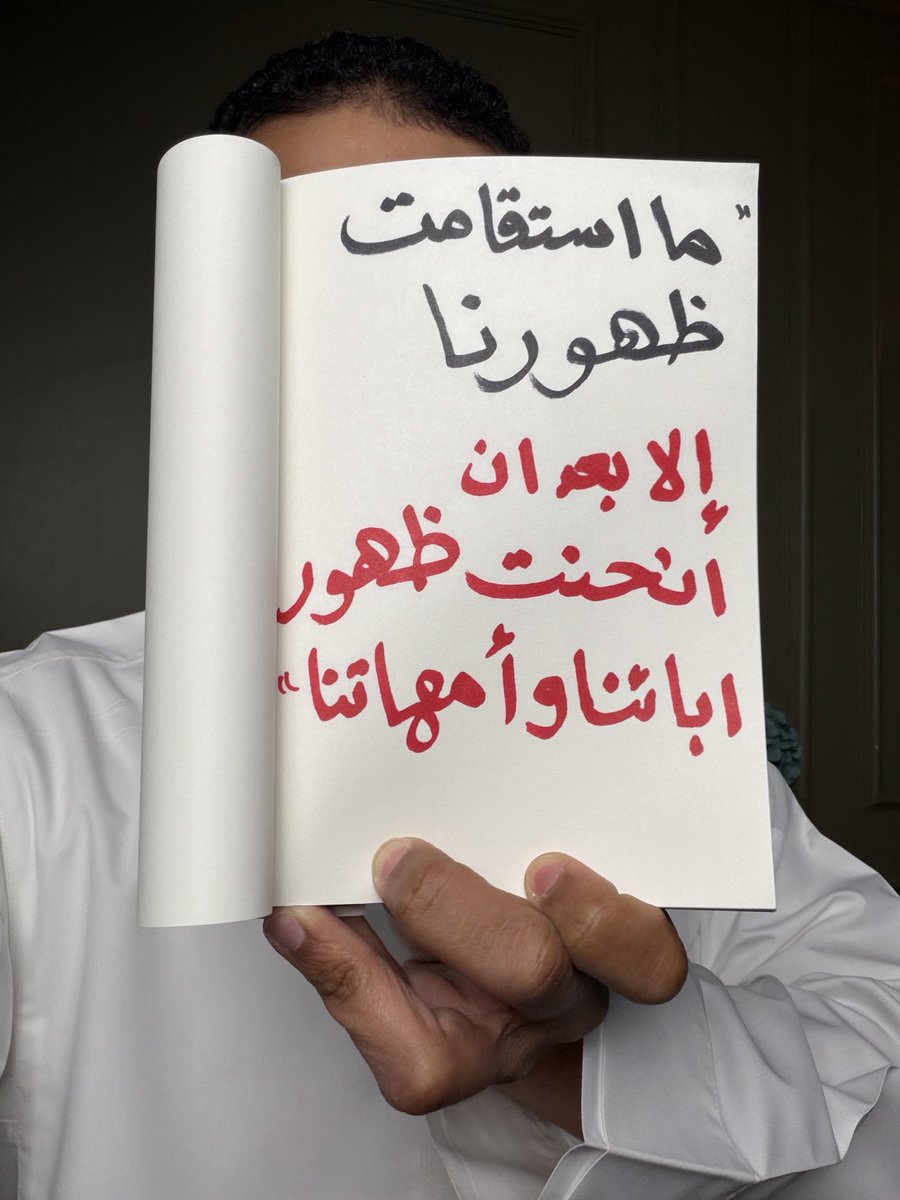 "ما استقامت
ظهورنا
إلا بعد ان
أنحنت ظهور
ابائنا وأمهاتنا"